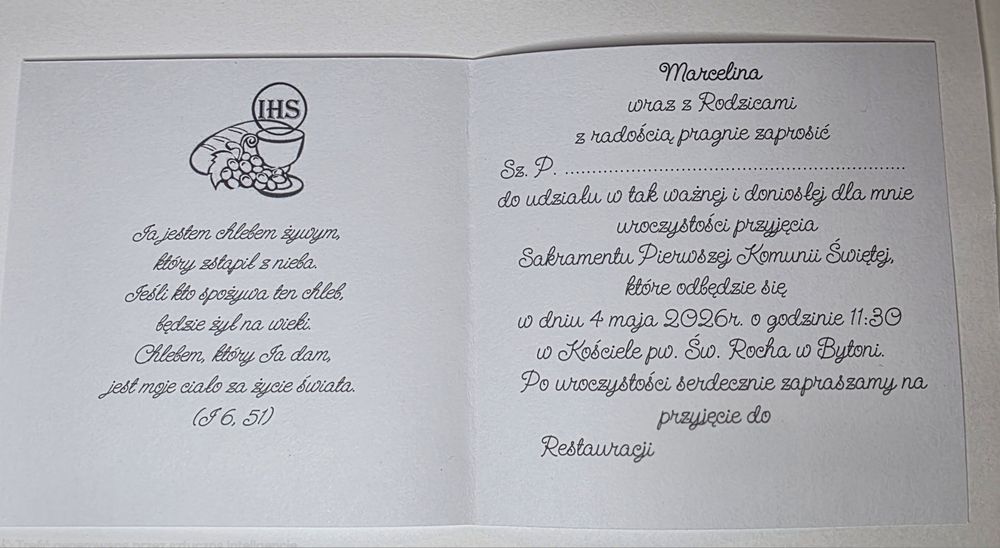 IHS
Ja jestem chlebem żywym,
który zstąpił z nieba.
Jeśli kto spożywa ten chleb,
będzie żył na wieki.
Chlebem, który Ja dam,
jest moje ciało za życie świata.
(J 6, 51)
Marcelina
wraz z Rodzicami
z radością pragnie zaprosić
Sz. P. ..............................................................................
do udziału w tak ważnej i doniosłej dla mnie
uroczystości przyjęcia
Sakramentu Pierwszej Komunii Świętej,
które odbędzie się
w dniu 4 maja 2026r. o godzinie 11:30
w Kościele pw. Św. Rocha w Bytoni.
Po uroczystości serdecznie zapraszamy na
przyjęcie do
Restauracji
Treść generowana przez sztuczną inteligencję